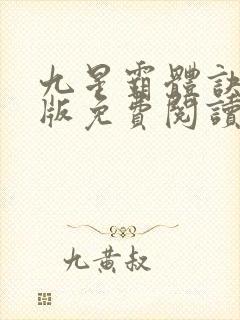 九星霸體訣
版免費閱讀
九黃叔